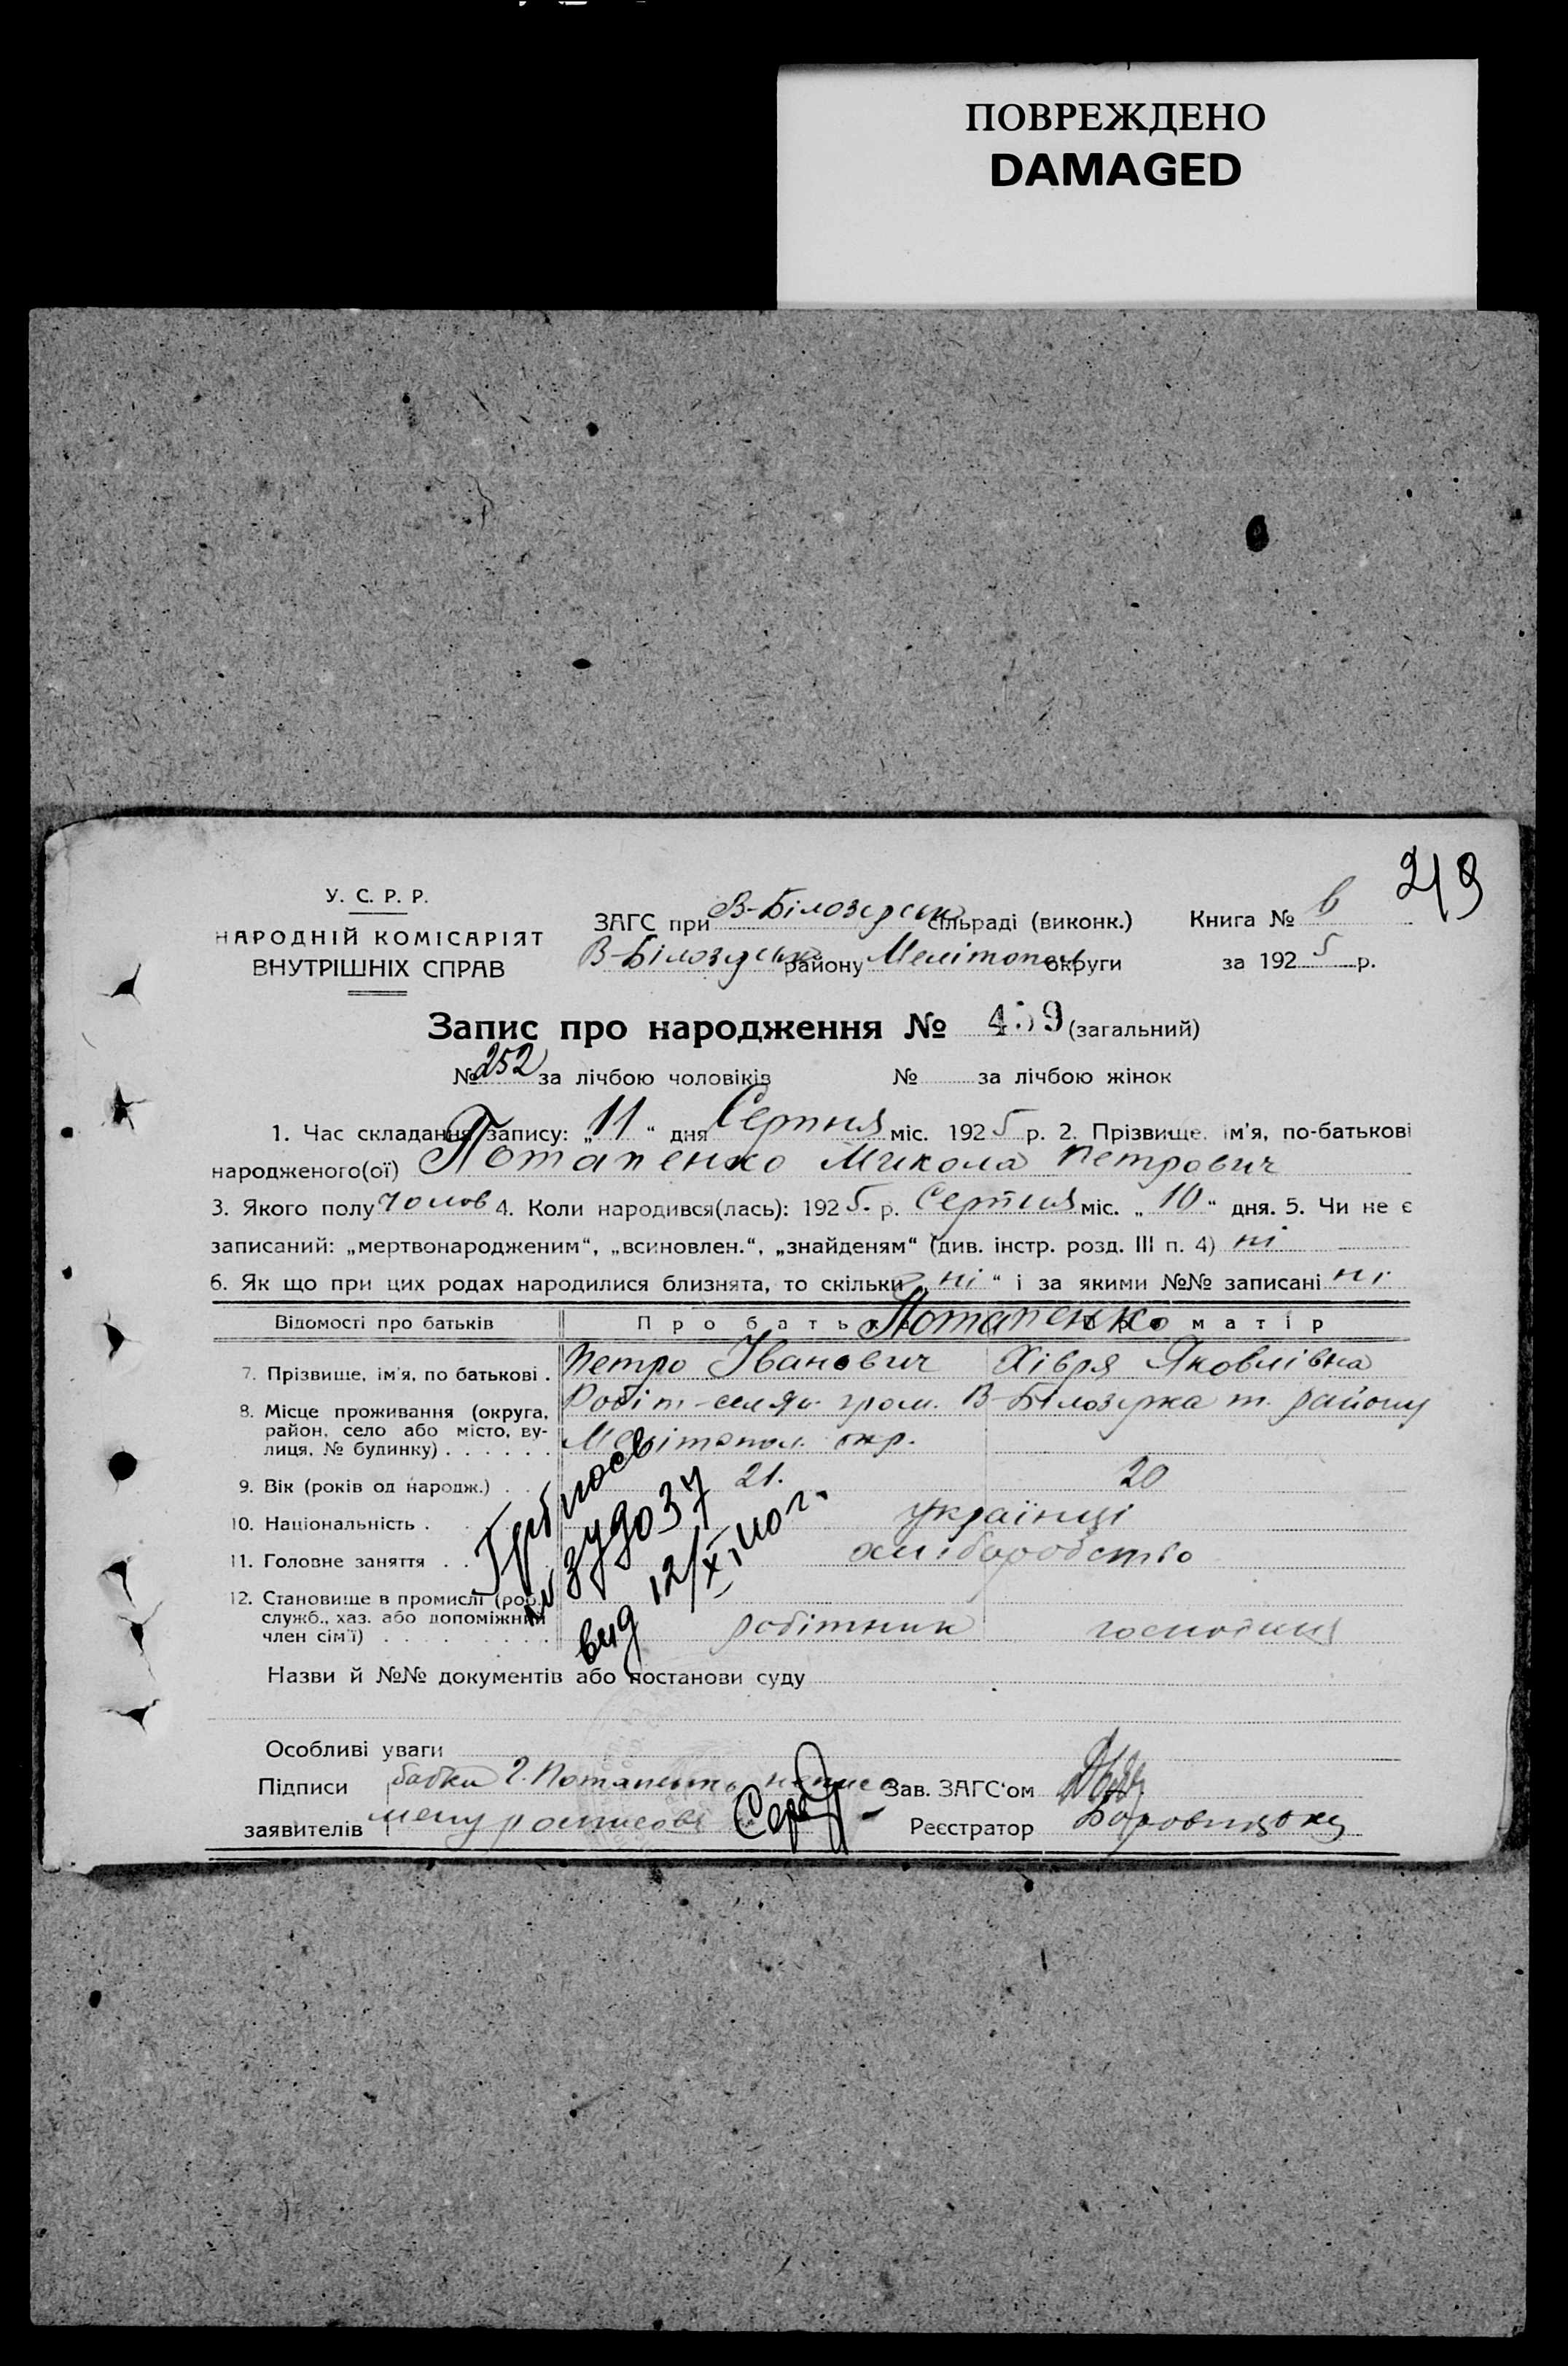 ПОВРЕЖДЕНО
DAMAGED
219
У. С. Р. Р.
НАРОДНІЙ КОМІСАРІЯТ
ВНУТРІШНІХ СПРАВ
ЗАГС при В-Білозерськ сільраді (виконк.) Книга №
В-Білозерськ району Мелітополь округи за 1925 р.
Запис про народження № 459 (загальний)
№ 252 за лічбою чоловіків № за лічбою жінок
1. Час складання запису: „11“ дня Серпня міс. 1925 р. 2. Прізвище, ім'я, по-батькові
народженого(ої) Потапенко Микола Петрович
3. Якого полу чолов 4. Коли народився(лась): 1925. р. Серпня міс. „10“ дня. 5. Чи не є
записаний: „мертвонародженим“, „всиновлен.“, „знайденям“ (див. інстр. розд. III п. 4) ні
6. Як що при цих родах народилися близнята, то скільки „ні“ і за якими №№ записані ні
Відомості про батьків Про батька Про матір
Потапенко
7. Прізвище, ім'я, по батькові . Петро Іванович Хівря Яковлівна
8. Місце проживання (округа, район, село або місто, вулиця, № будинку) . . . . . Робіт-селян. гром. В-Білозірка т. району
Мелітопол. окр.
9. Вік (років од народж.) . . 21. 20
10. Національність . українці
11. Головне заняття . . хліборобство
12. Становище в промислі (роб.,
служб., хаз. або допоміжний
член сім'ї) . . . . . . . . робітник господиня
вид 12/XI 40 г.
Назви й №№ документів або постанови суду
Особливі уваги
Підписи бабки Г. Потапенко непис
заявителів расписовс
Зав. ЗАГС'ом
Реєстратор